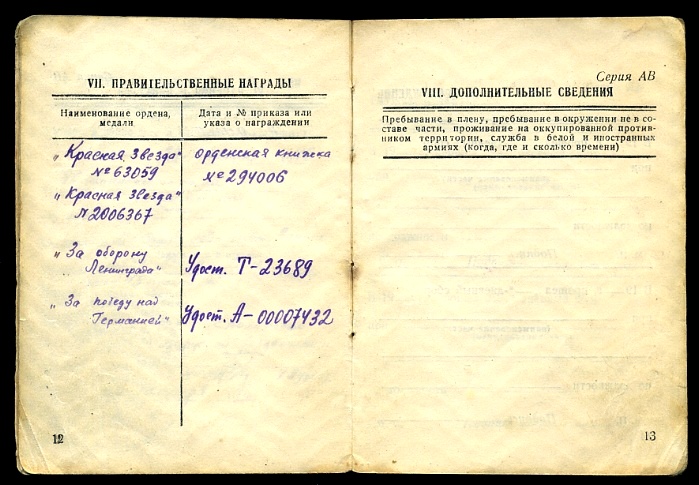 VII. ПРАВИТЕЛЬСТВЕННЫЕ НАГРАДЫ
Наименование ордена,
медали
Дата и № приказа или
указа о награждении
„Красная Звезда"
№ 63059
орденская книжка
№ 294006
„Красная Звезда"
№ 2006367
„За оборону
Ленинграда"
Удост. Т-23689
„За победу над
Германией"
Удост. А-00007432
12
Серия АВ
VIII. ДОПОЛНИТЕЛЬНЫЕ СВЕДЕНИЯ
Пребывание в плену, пребывание в окружении не в со-
ставе части, проживание на оккупированной против-
ником территории, служба в белой и иностранных
армиях (когда, где и сколько времени)
13